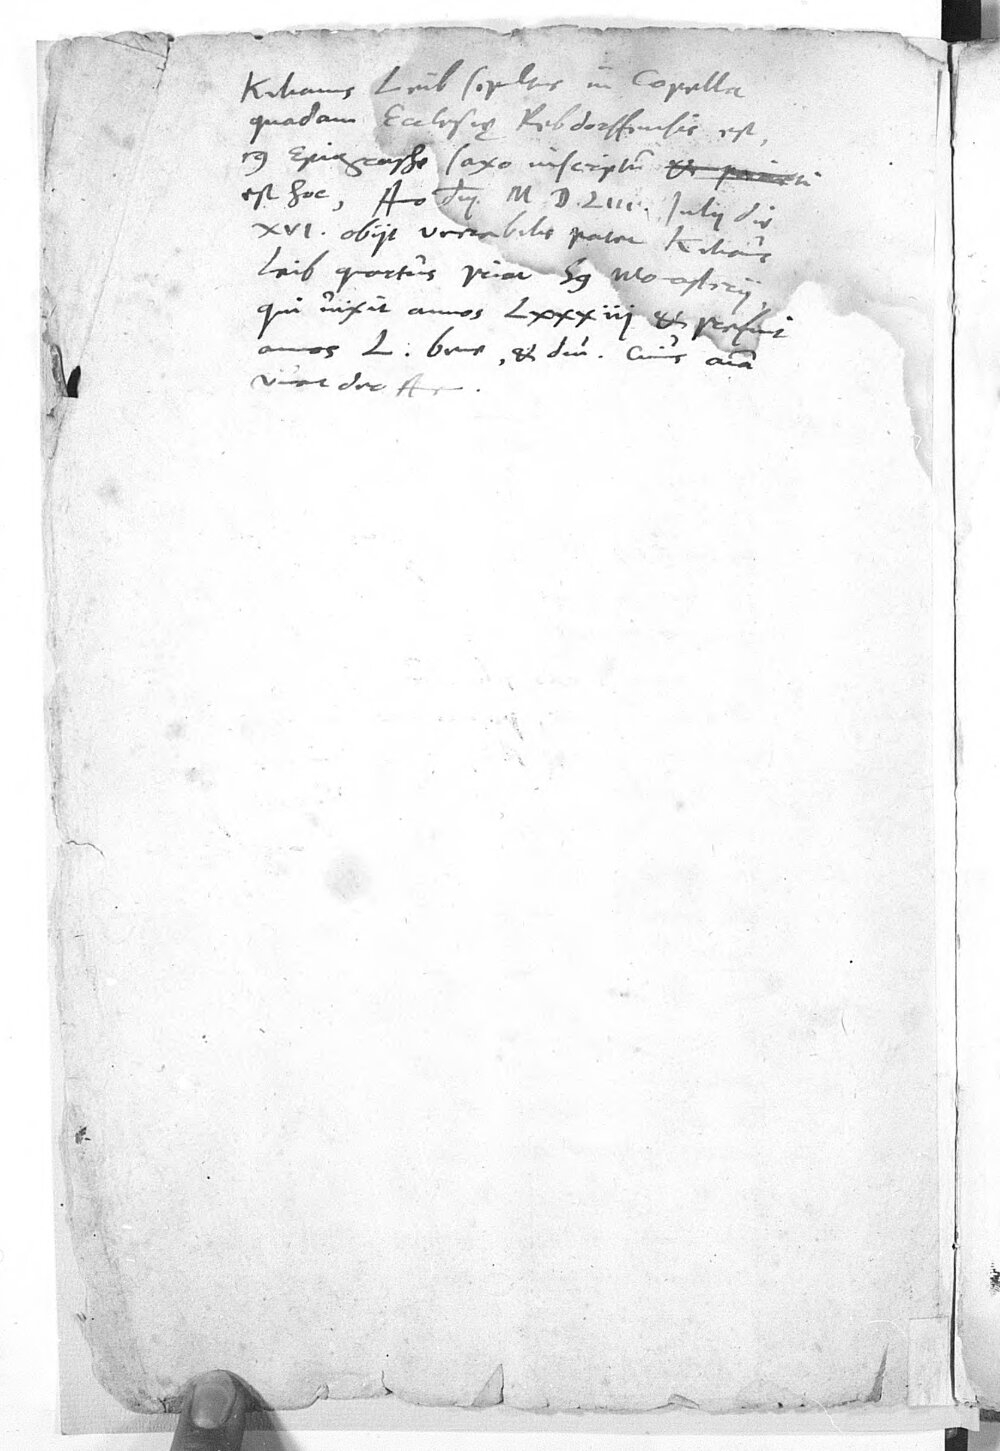 Kilianus Leib sepultus in Capella
quadam Ecclesię Rebdorffensis est,
Epigraphe saxo inscriptū
est hoc, Ao dnj. M D. LIII. Julij die
XVI. obijt venerabilis pater Kilianūs
Leib quartūs prior hꝫ Monasterij,
qui ūixit annos Lxxxiij & prefuit
annos L. bene, & diu. Cuiūs aīa
viuat deo Ame.